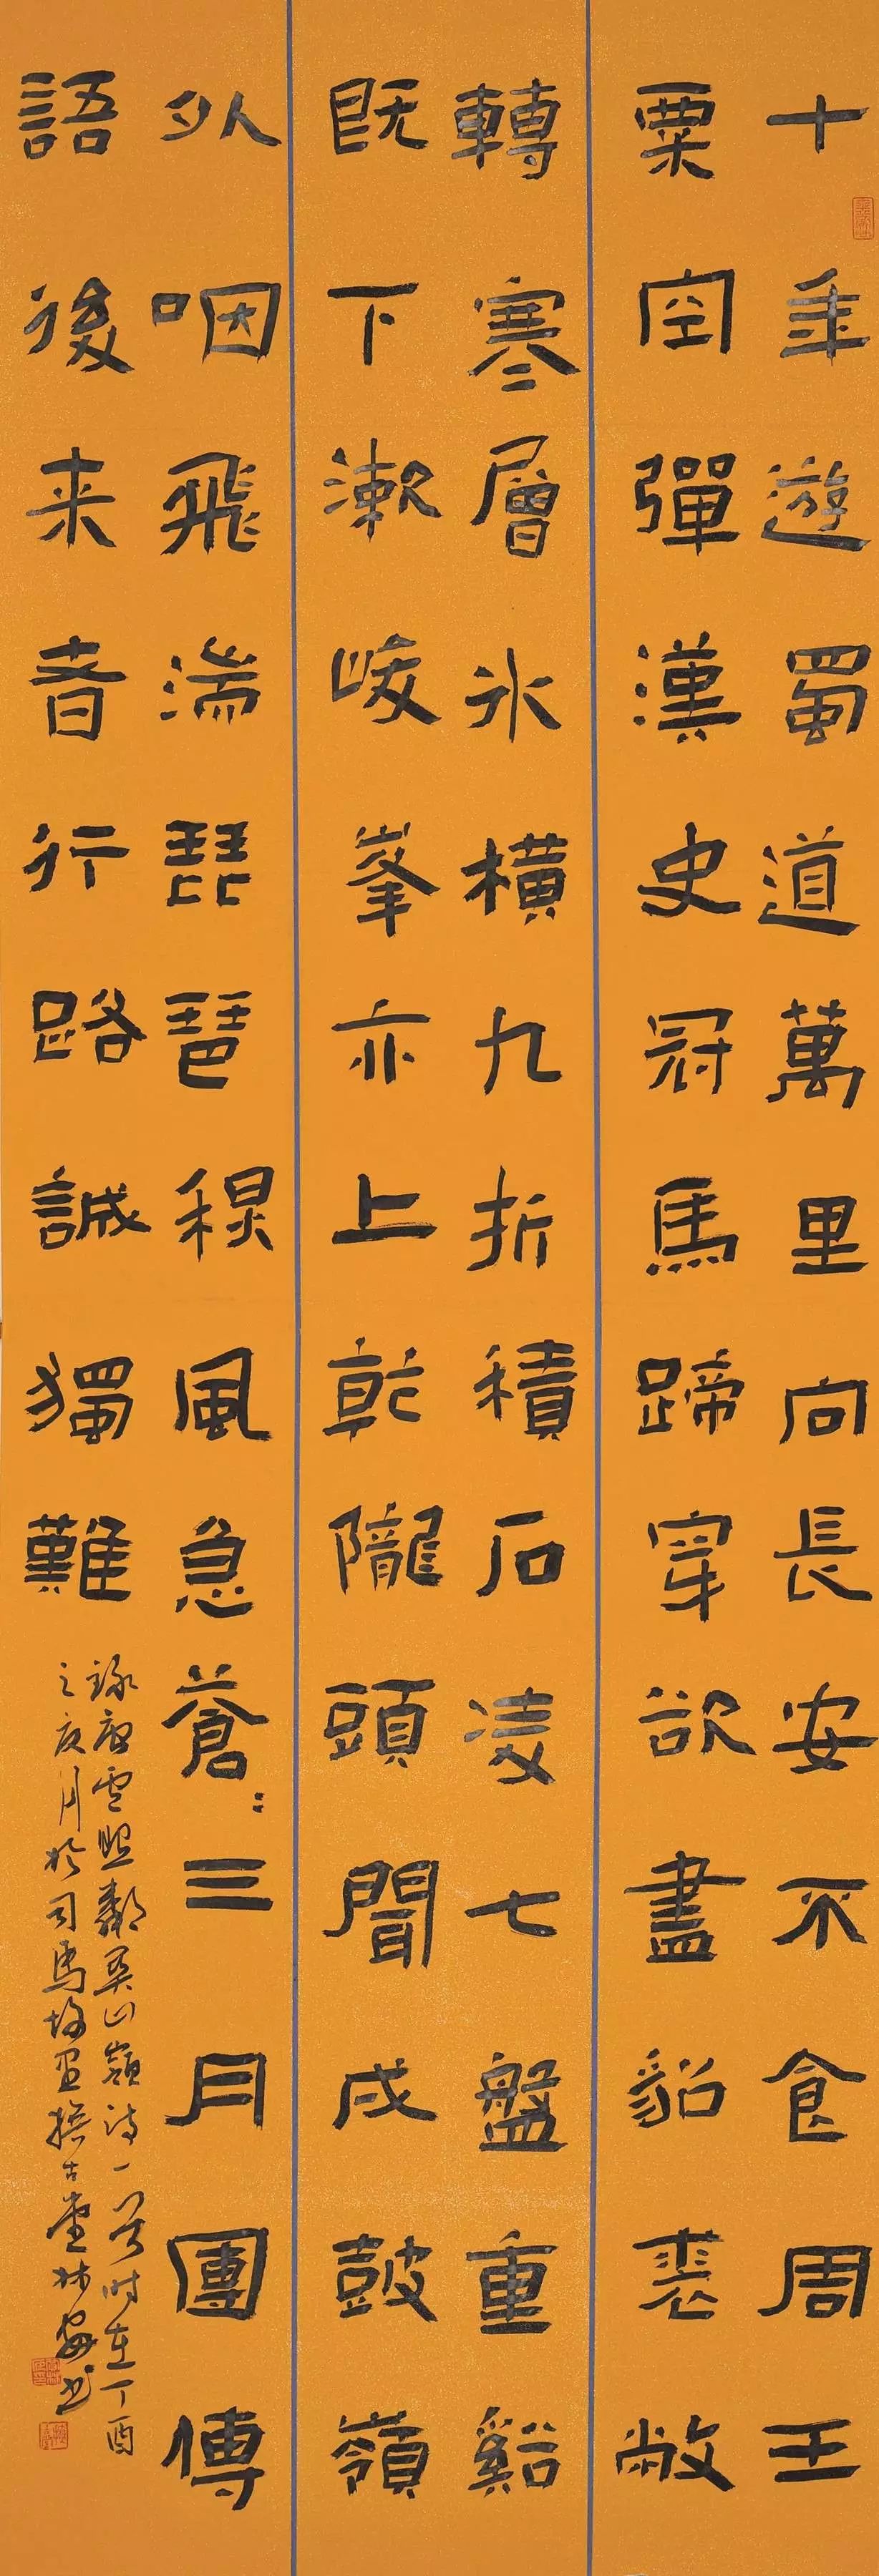 十年遊蜀道萬里向長安不食周王
粟空彈漢史冠馬蹄穿欲盡貂裘敝
轉寒層冰橫九折積石凌七盤重谿
既下漱峻峯亦上乾隴頭聞戍鼓嶺
外咽飛湍琵琶風急蒼:三月團傳
語後来者行路誠獨難
錄唐照鄰山嶺詩一首時在丁酉
之夜月於司馬古堂林書